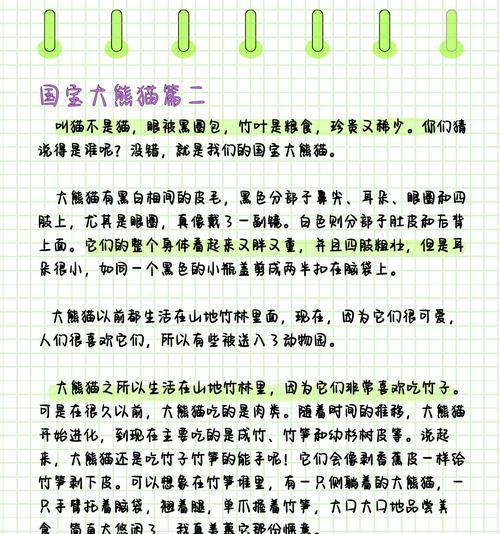 国宝大熊猫篇二
叫猫不是猫，眼被黑圈包，竹叶是粮食，珍贵又稀少。你们猜
说得是谁呢？没错，就是我们的国宝大熊猫。
大熊猫有黑白相间的皮毛，黑色分部子鼻尖、耳朵、眼圈和四
肢上，尤其是眼圈，真像戴了一副镜。白色则分部于肚皮和后背
上面。它们的整个身体看起来又胖又重，并且四肢粗壮，但是耳
朵很小，如同一个黑色的小瓶盖剪成两半扣在脑袋上。
大熊猫以前都生活在山地竹林里面，现在，因为它们很可爱，
人们很喜欢它们，所以有些被送入了动物园。
大熊猫之所以生活在山地竹林里，因为它们非常喜欢吃竹子。
可是在很久以前，大熊猫吃的是肉类。随着时间的推移，大熊猫
开始进化，到现在主要吃的是成竹、竹笋和幼杉树皮等。说起
来，大熊猫还是吃竹子竹笋的能手呢！它们会像剥香蕉皮一样给
竹笋剥下皮。可以想象在竹笋堆里，有一只侧躺着的大熊猫，一
只手臂托着脑袋，翘着腿，单爪握着竹笋，大口大口地品尝美
食，简直太悠闲了，我真羡慕它那份惬意。